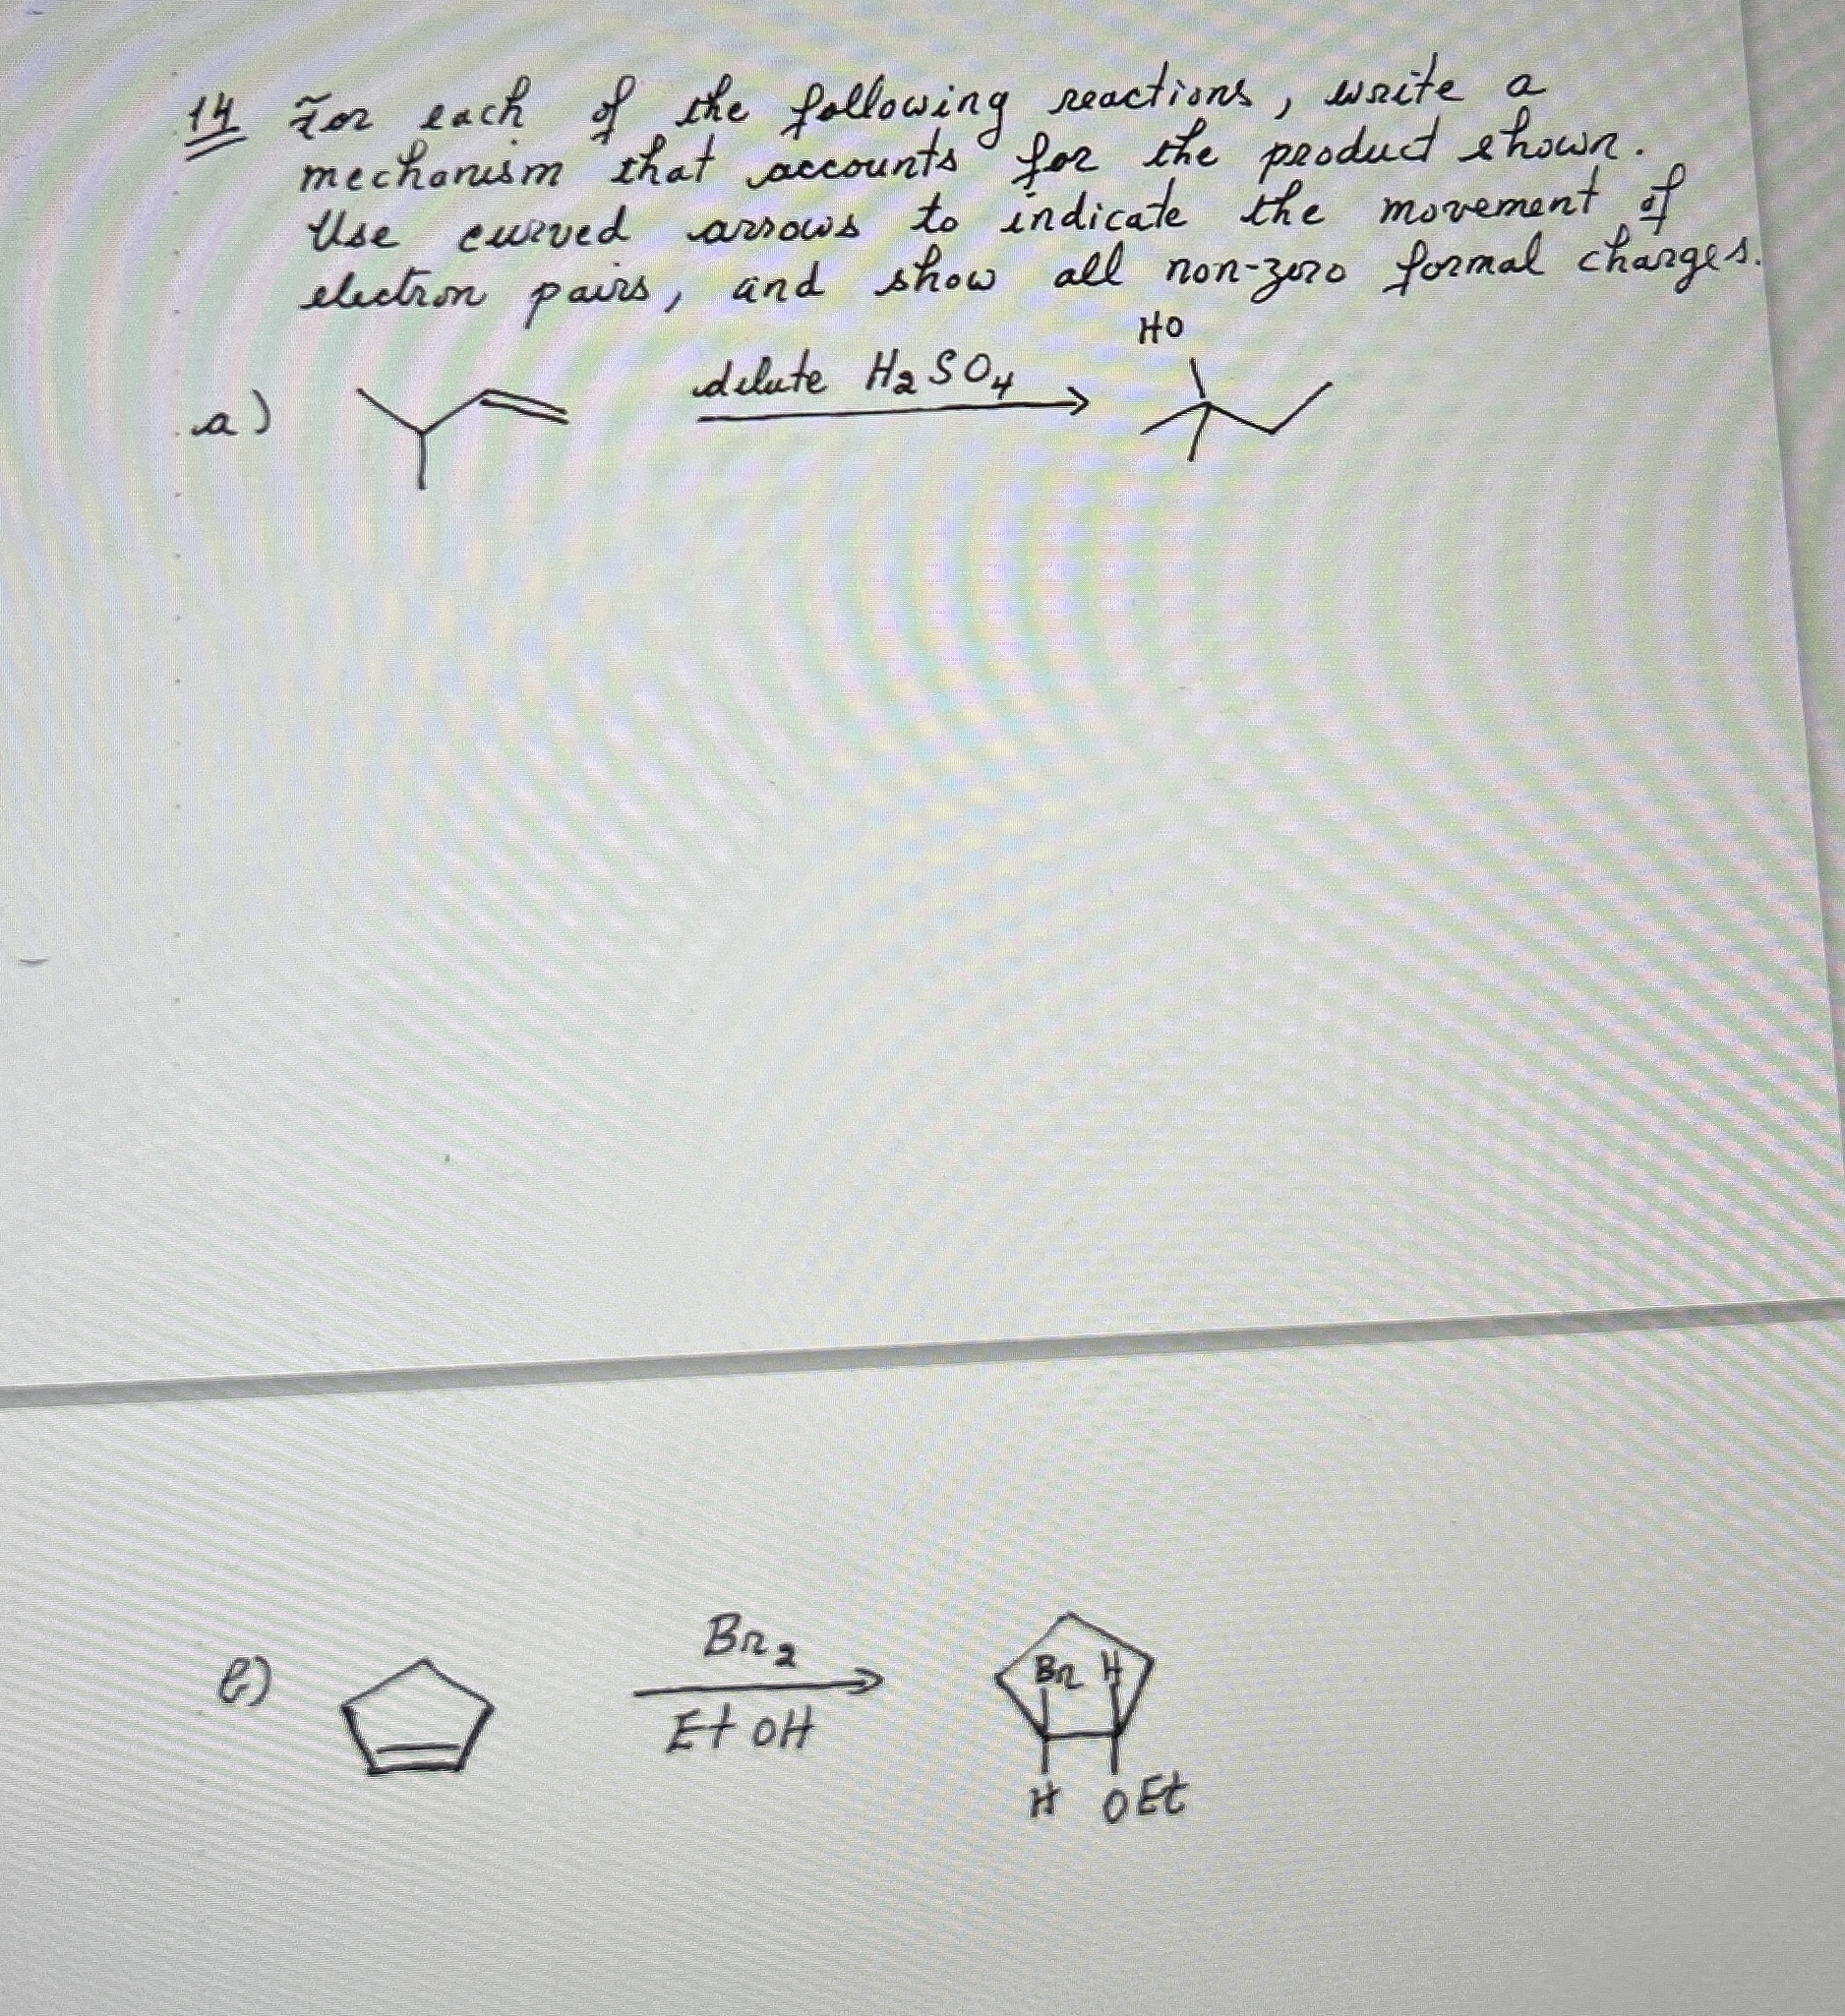 14 For each of the following reactions, write a
mechanism that accounts for the product shown.
Use curved arrows to indicate the movement of
electron pairs, and show all non-zero formal charges.
HO
a) dilute H₂SO₄
Br₂
b) Br H
EtOH
H OEt